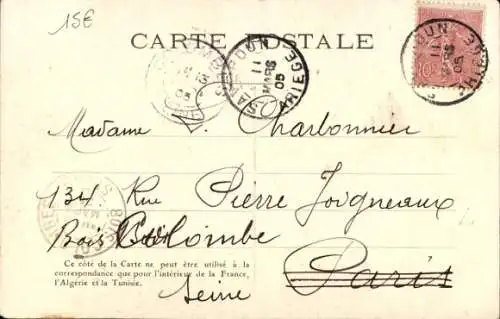 15€
CARTE POSTALE
11
MARS
05
ARIEGE
11
MARS
05
Madame Charbonnier
134 Rue Pierre Joigneaux
Bois Colombe
Ce côté de la Carte ne peut être utilisé à la
correspondance que pour l'intérieur de la France,
l'Algérie et la Tunisie.
Paris
Seine